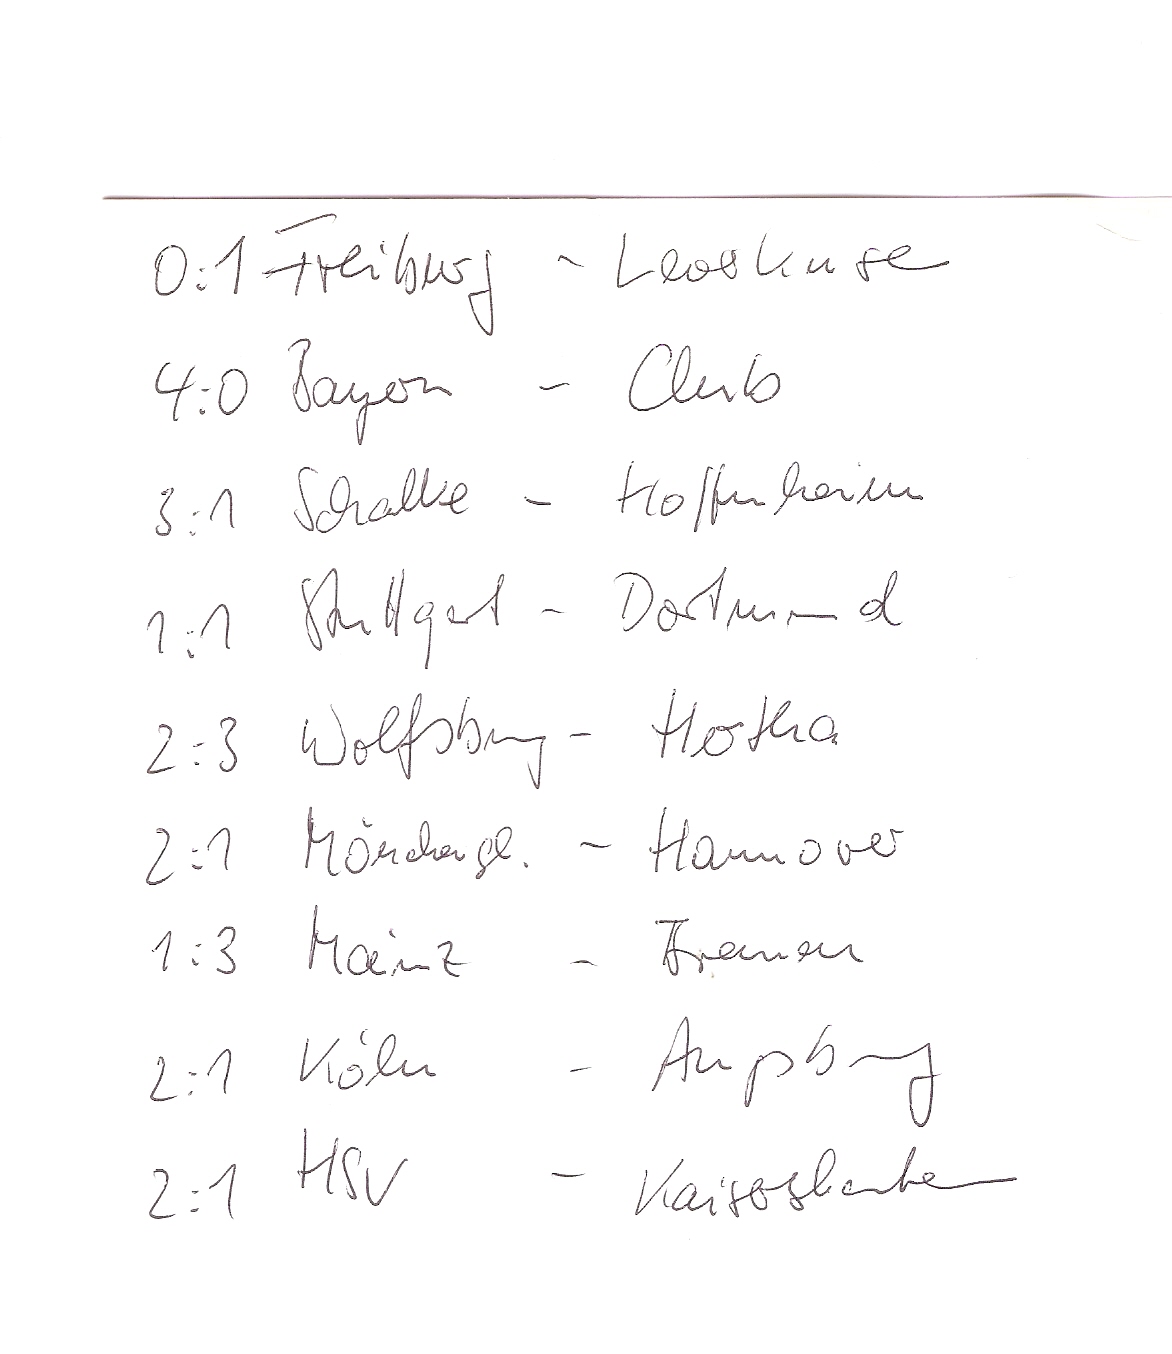 0:1 Freiburg - Leverkusen
4:0 Bayern - Club
3:1 Schalke - Hoffenheim
1:1 Stuttgart - Dortmund
2:3 Wolfsburg - Hertha
2:1 Mönchengl. - Hannover
1:3 Mainz - Bremen
2:1 Köln - Augsburg
2:1 HSV - Kaiserslautern